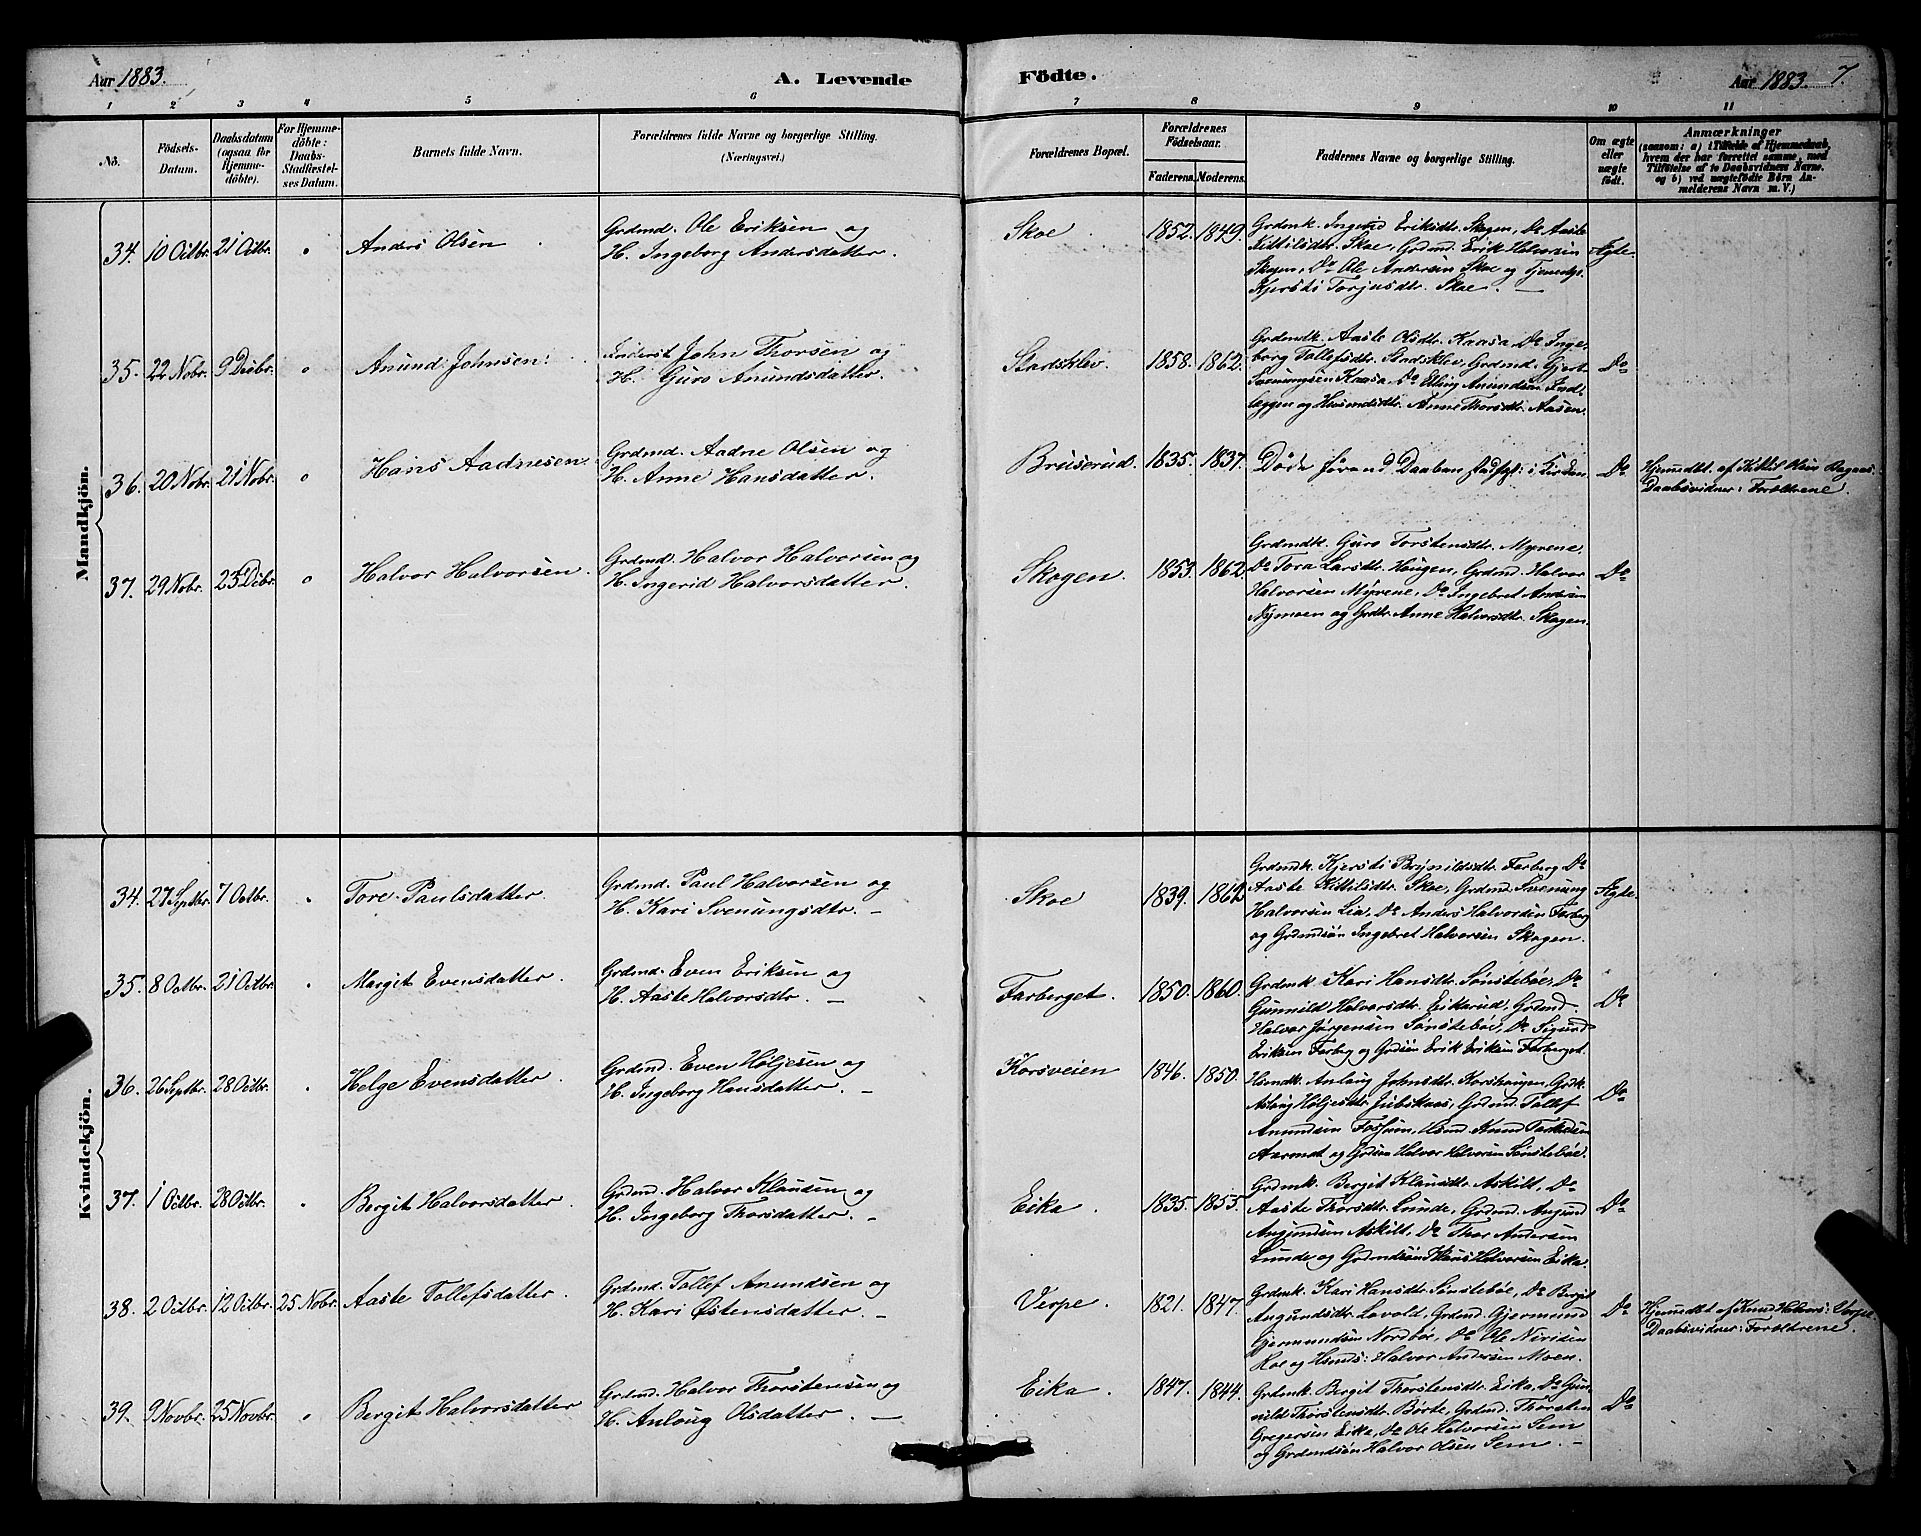 Aar 1883.
A. Levende Födte.
Aar 1883. 7.
1 2 3 4 5 6 7 8 9 10 11
No.
Födsels-Datum.
Daabsdatum (ogsaa for Hjemme-döbte).
For Hjemme-döbte: Daabs-Stadfæstel-ses Datum.
Barnets fulde Navn.
Forældrenes fulde Navne og borgerlige Stilling.
(Næringsvei.)
Forældrenes Bopæl.
Forældrenes Födselsaar.
Faderens. Moderens.
Faddernes Navne og borgerlige Stilling.
Om ægte eller uægte födt.
Anmærkninger
(saasom: a) i Tilfælde af Hjemmedaab, hvem der har forrettet samme, med Tilföielse af to Daabsvidners Navne, og b) ved uægtefödte Börn An-melderens Navn m. V.)
Mandkjön.
34. 10 Octbr. 21 Octbr. " Anders Olsen
Grdmd. Ole Eriksen og
H. Ingeborg Andersdatter.
Skoe 1852. 1849.
Grdmk. Ingerid Eriksdtr. Skogen, Do Aaste
Kittilsdtr. Skoe, Grdmd. Erik Halvorsen
Skogen, Do Ole Andersen Skoe og Tjenestp.
Kjersti Torjusdtr. Skoe. —
Ægte.
35. 22 Nobr. 9 Decbr. " Anund Johnsen.
Inderst John Thorsen og
H. Guro Anundsdatter.
Stadsklev 1858. 1862.
Grdmdk. Aaste Olsdtr. Kaasa, Do Inge-
borg Tollefsdtr. Stadsklev, Grdmd. Gjert
Svenungsen Kaasa, Do Elling Anundsen
og Husmdsdtr. Anne Thorsdtr. Aasen.
Do
36. 20 Nobr. 21 Nobr. " Hans Aadnesen.
Grdmd. Aadne Olsen og
H. Anne Hansdatter.
Bruserud. 1835. 1837.
Døde forend Daaben stadfst: i Kirken
Do
Hjemmedbt. af Kittil
Daabsvidner: Forældrene.
37. 29 Nobr. 23 Decbr. " Halvor Halvorsen.
Grdmd. Halvor Halvorsen og
H. Ingerid Halvorsdatter.
Skogen. 1853. 1862.
Grdmdk. Guro Torstensdtr. Myrene,
Do Tora Larsdtr. Haugen, Grdmd. Halvor
Halvorsen Myrene, Do Ingebret Andersen
Nymoen og Grdtr. Anne Halvorsdtr. Skogen.
Do
Kvindekjön.
34. 27 Septbr. 7 Octbr. " Tore Paulsdatter.
Grdmd. Paul Halvorsen og
H. Kari Svenungsdtr. —
Skoe 1839. 1862
Grdmdk. Kjersti Brynildsdtr. Farberg Do
Aaste Kittilsdtr. Skoe, Grdmd. Svenung
Halvorsen Lia, Do Anders Halvorsen Farberg
og Grdmdsøn Ingebret Halvorsen Skogen.
Ægte.
35. 8 Octbr. 21 Octbr. " Margit Evensdatter.
Grdmd. Even Eriksen og
H. Aaste Halvorsdtr. —
Farberget. 1850. 1860.
Grdmk. Kari Hansdtr. Sønstebøe, Do
Gunnild Halvorsdtr. Eikerud, Grdmd.
Halvor Jørgensen Sønstebøe, Do Sigurd
Eriksen Farberg og Grdsøn Erik Eriksen Farberget.
Do
36. 26 Septbr. 28 Octbr. " Helge Evensdatter.
Grdmd. Even Høljesen og
H. Ingeborg Hansdatter. —
Korsveien 1846. 1850.
Hsmdk. Anlaug Johnsdtr. Korshaugen, Grdk.
Aslaug Høljesdtr. Jubskaas, Grdmd. Tollef
Anundsen Fossum, Hsmd. Knud
og Grdsøn Halvor Halvorsen Sønstebøe.
Do
37. 1 Octbr. 28 Octbr. " Bergit Halvorsdatter.
Grdmd. Halvor Klausen og
H. Ingeborg Thorsdatter. —
Eika. 1835. 1855.
Grdmk. Bergit Klausdtr. Askilt, Do
Aaste Thorsdtr. Lunde, Grdmd. Augund
Augundsen Askilt, Do Thor Andersen
Lunde og Grdmdsøn Hans Halvorsen Eika.
Do
38. 2 Octbr. 12 Octbr. 25 Nobr. Aaste Tollefsdatter.
Grdmd. Tollef Anundsen og
H. Kari Østensdatter. —
Verpe. 1821. 1847.
Grdmk. Kari Hansdtr. Sønstebøe, Do Bergit
Augundsdtr. Lovald, Grdmd. Gjermund
Gjermundsen Nordbøe, Do Ole Nirisen
Roe og Hsmds: Halvor Andersen Moen.
Do
Hjemmedbt. af Knud Halvors: Verpe.
Daabsvidner: Forældrene.
39. 9 Novbr. 25 Novbr. " Bergit Halvorsdatter
Grdmd. Halvor Thorstensen og
H. Anlaug Olsdatter. —
Eika. 1847. 1844.
Grdmk. Bergit Thorstensdtr. Eika, Do Gun-
nild Thorstensdtr. Børte, Grdmd. Thorsten
Gregersen Eika, Do Ole Halvorsen Sem
og Grdmdsøn Halvor Olsen Sem. —
Do